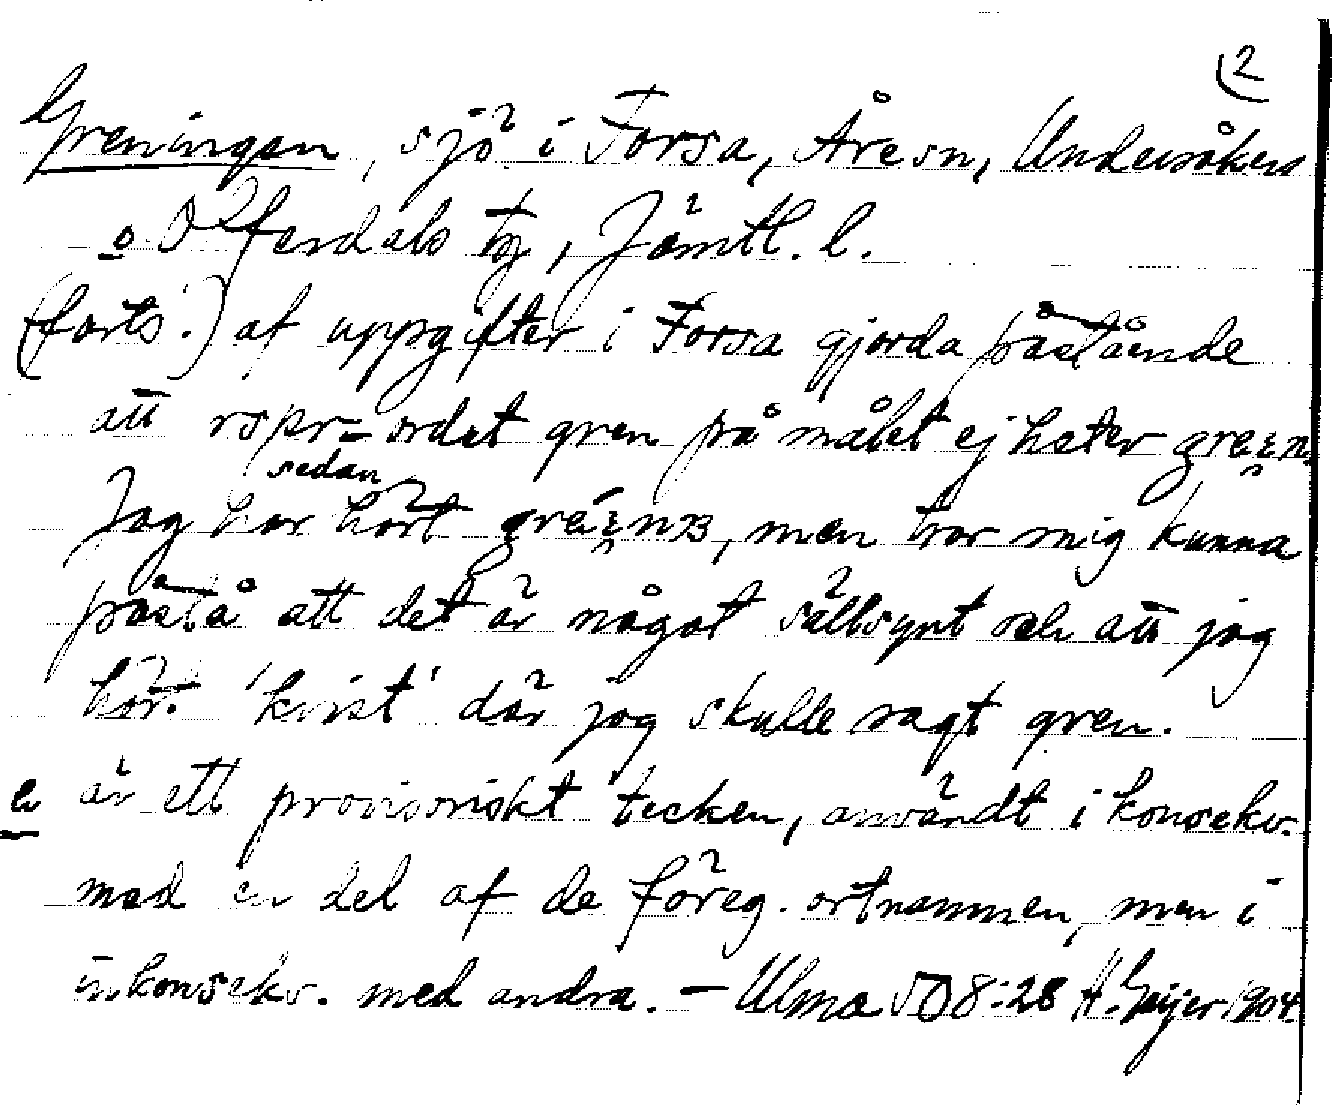 2
Greningen, sjö i Forsa, Åre sn, Undersåkers
o Offerdals tg, Jämtl. l.
(forts.) af uppgifter i Forsa gjorda påstående
att rspr-ordet gren på målet ej heter
sedan
Jag har hört, men tror mig kunna
påstå att det är något sällsynt och att jag
hört 'kvist' där jag skulle sagt gren.
är ett provisoriskt tecken, användt i konsekv.
med en del af de föreg. ortnamnen, men i
inkonsekv. med andra. – Ulma 508:28 H. Geijer 1904.